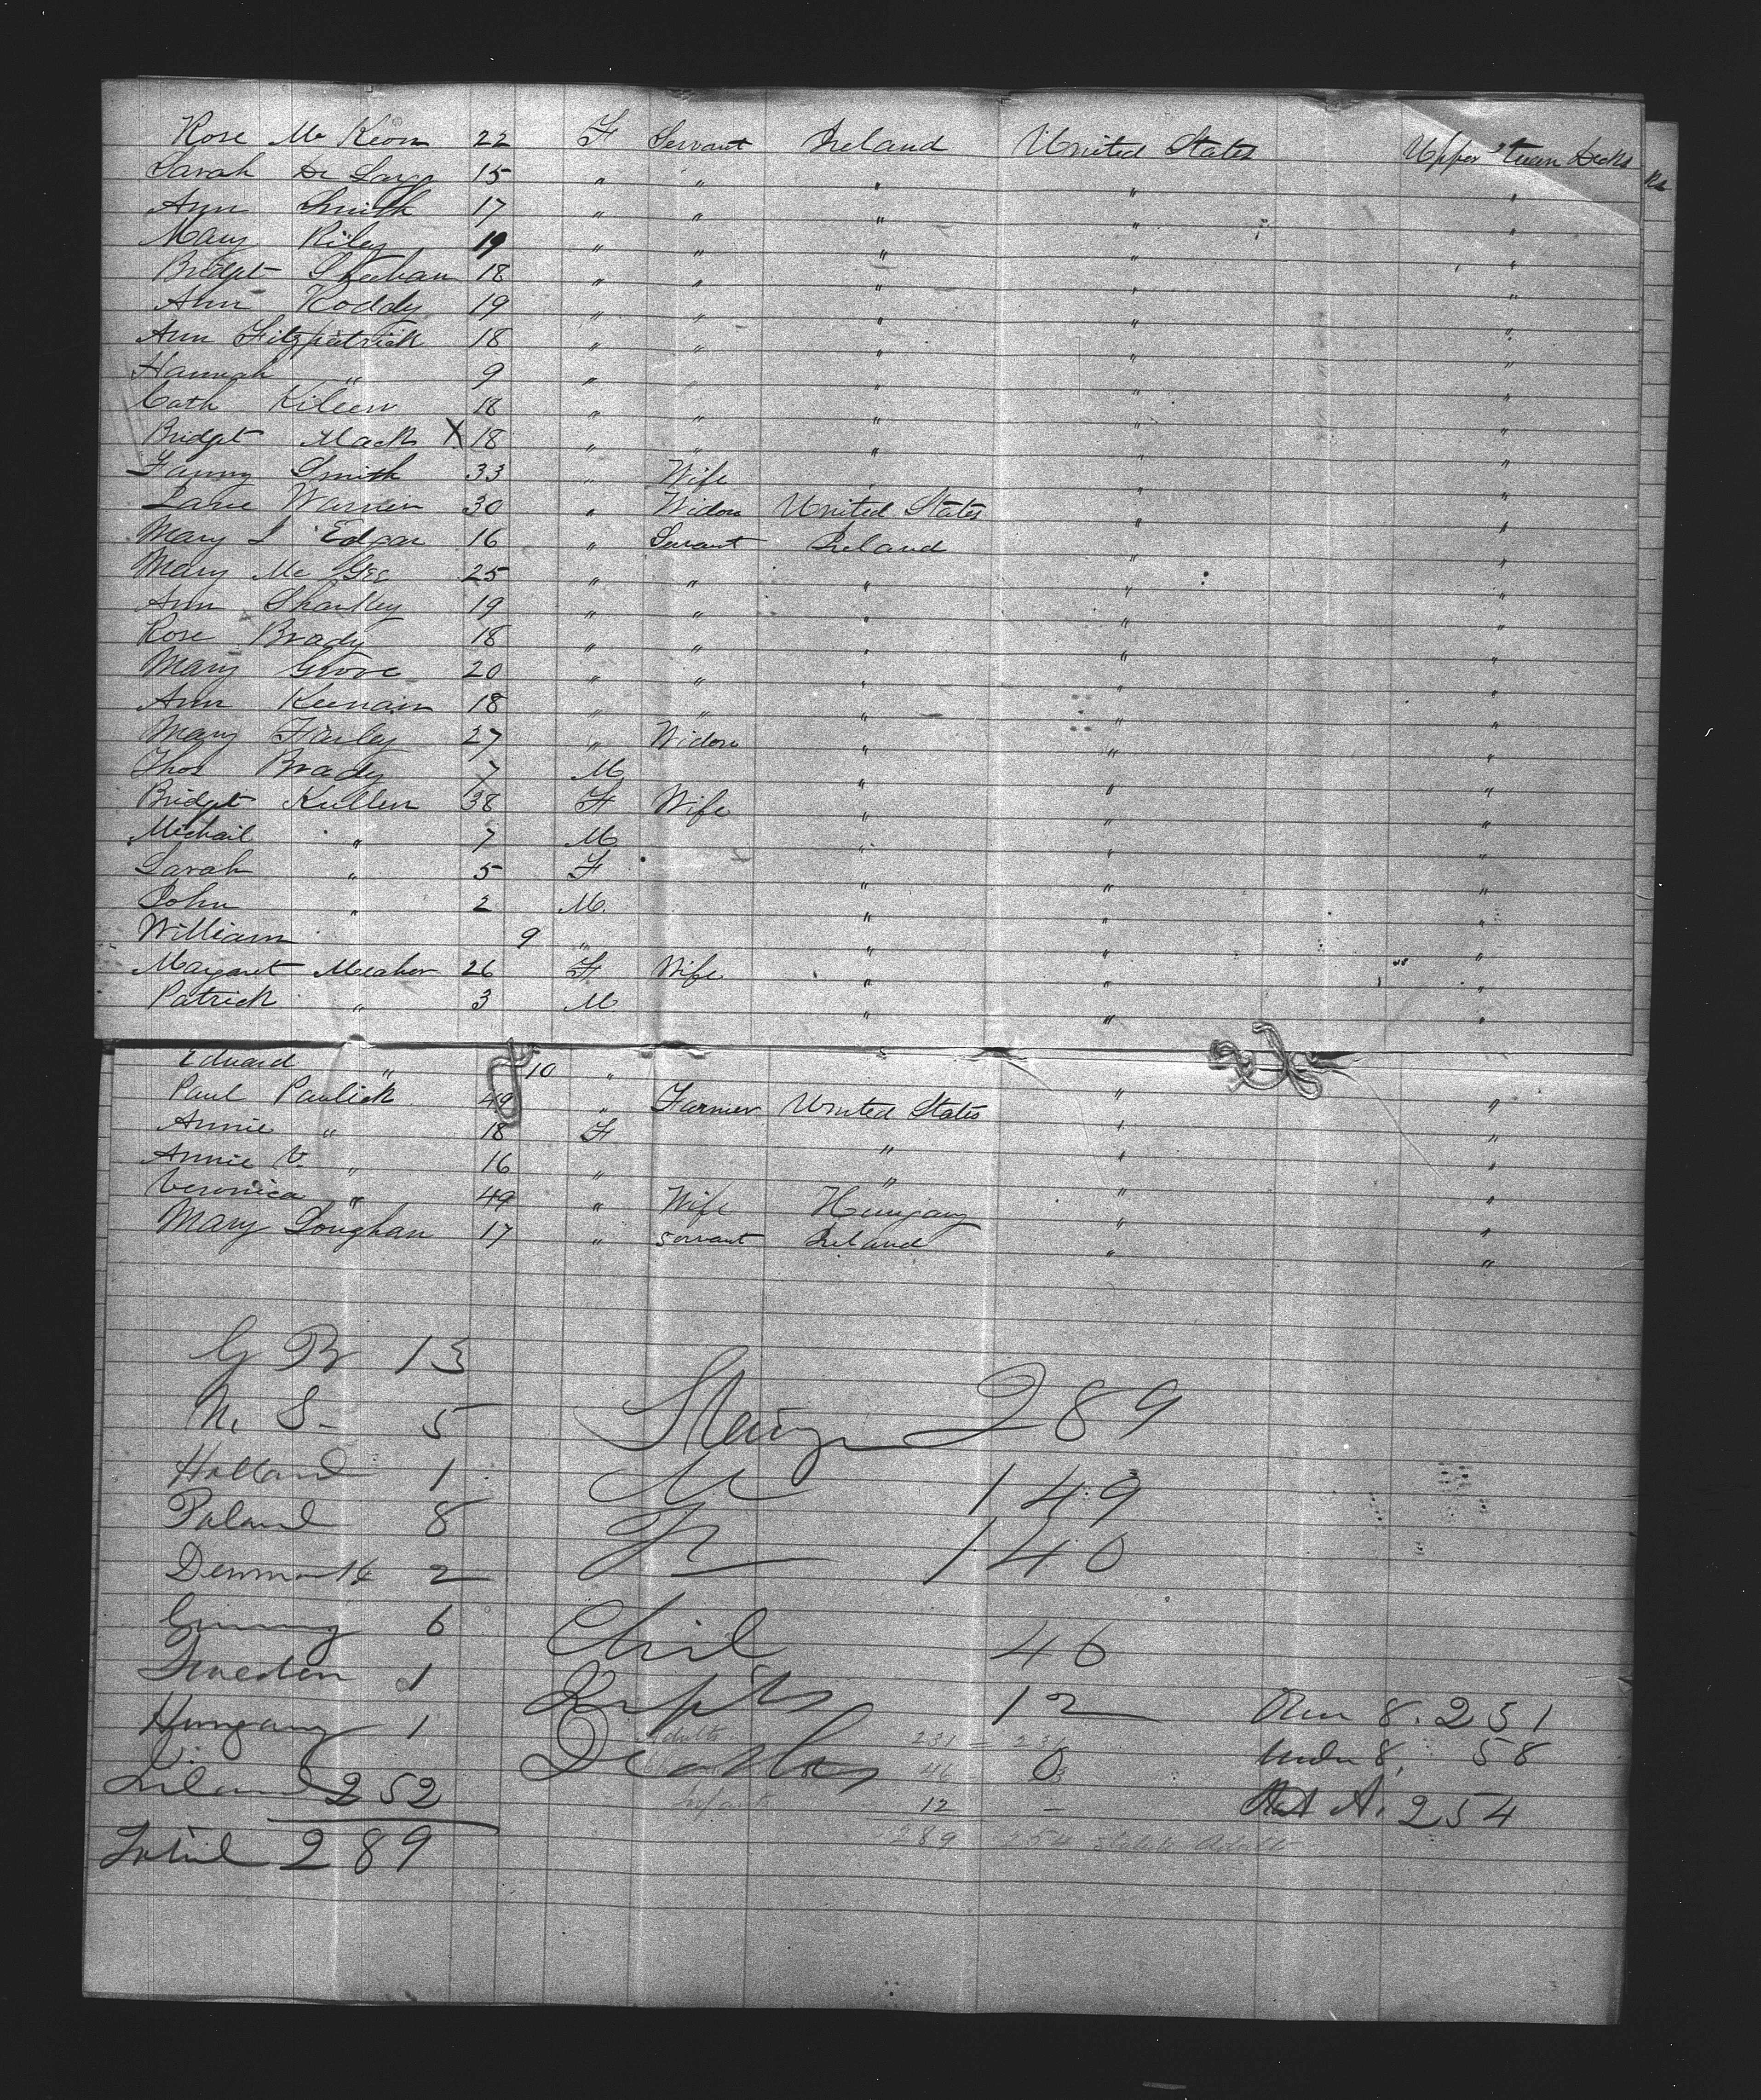 Rose Mc Keon 22 F Servant Ireland United States Upper 'tween Decks
Sarah 15 " " " " "
Ann Smith 17 " " " " "
Mary Riley 19 " " " " "
Bridget Sheehan 18 " " " " "
Ann Roddy 19 " " " " "
Ann Fitzpatrick 18 " " " " "
Hannah " 9 " " " " "
Cath Kileen 18 " " " " "
Bridget Mack X 18 " " " " "
Fanny Smith 33 " Wife " " "
30 " Widow United States " "
Mary J Edgar 16 " Servant Ireland " "
Mary Mc Gee 25 " " " " "
Ann Sharkey 19 " " " " "
Rose Brady 18 " " " " "
Mary 20 " " " " "
Ann Keenain 18 " " " " "
Mary Farley 27 " Widow " " "
Thos Brady 7 M " " "
Bridget Kullen 38 F Wife " " "
Michail " 7 M " " "
Sarah " 5 F " " "
John " 2 M. " " "
William 9 " " " "
Margaret Meaher 26 F Wife " " "
Patrick " 3 M " " "
Eduard " 10 " " "
Paul Paulick 49 " Farmer United States " "
Annie " 18 F " " "
Annie V. " 16 " " " "
Veronica " 49 " Wife Hungary " "
Mary Loughan 17 " Servant Ireland " "
G Br 13
U. S- 5 289
Holland 1 M 149
Poland 8 F 140
Denmark 2
Germany 6 Chil 46
Sweden 1 Infts 12
Hungary 1 Deaths 0
Ireland 252
Total 289
Adults 231
46
Infants 12 -
289 254 Adults
Over 8. 231
Under 8. 58
Stat A. 254